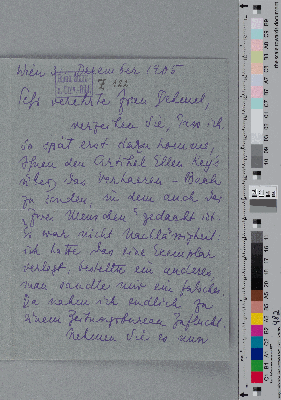 Wien, Dezember 1905
Z 122
Sehr verehrte Frau Dehmel,
verzeihen Sie, dass ich
so spät erst dazu komme,
Ihnen den Artikel Ellen Key's
über das Verhaeren-Buch
zu senden, in dem auch der
"Zwei Menschen" gedacht ist.
Es war nicht Nachlässigkeit:
ich hatte das eine Exemplar
verlegt, bestellte ein anderes,
man sandte mir ein falsches,
da nahm ich endlich zu
einem Zeitungsbureau Zuflucht.
Nehmen Sie es nun